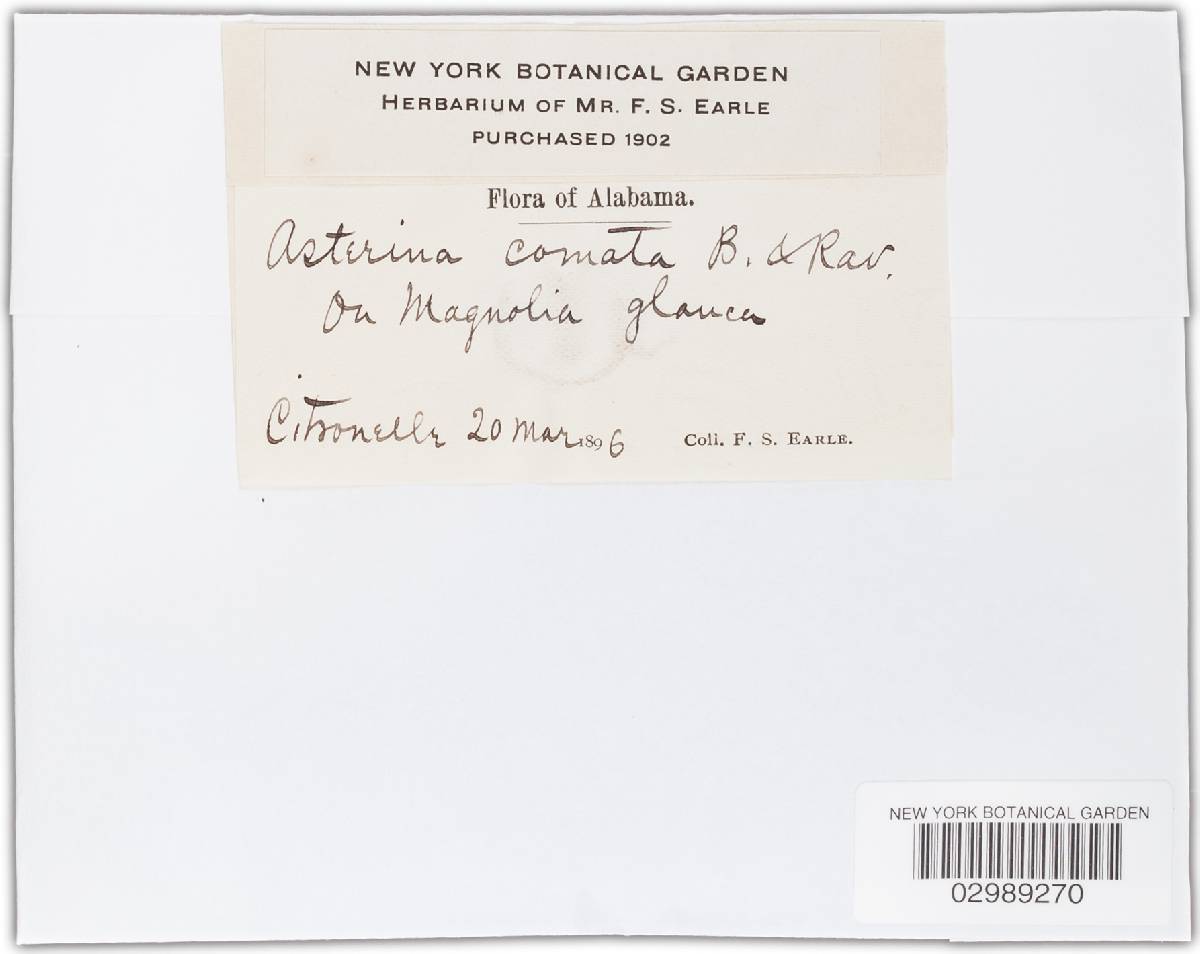 NEW YORK BOTANICAL GARDEN
HERBARIUM OF MR. F. S. EARLE
PURCHASED 1902
Flora of Alabama.
Asterina comata B. & Rav.
On Magnolia glauca
Citronelle 20 Mar 1896 Coll. F. S. EARLE.
NEW YORK BOTANICAL GARDEN
02989270